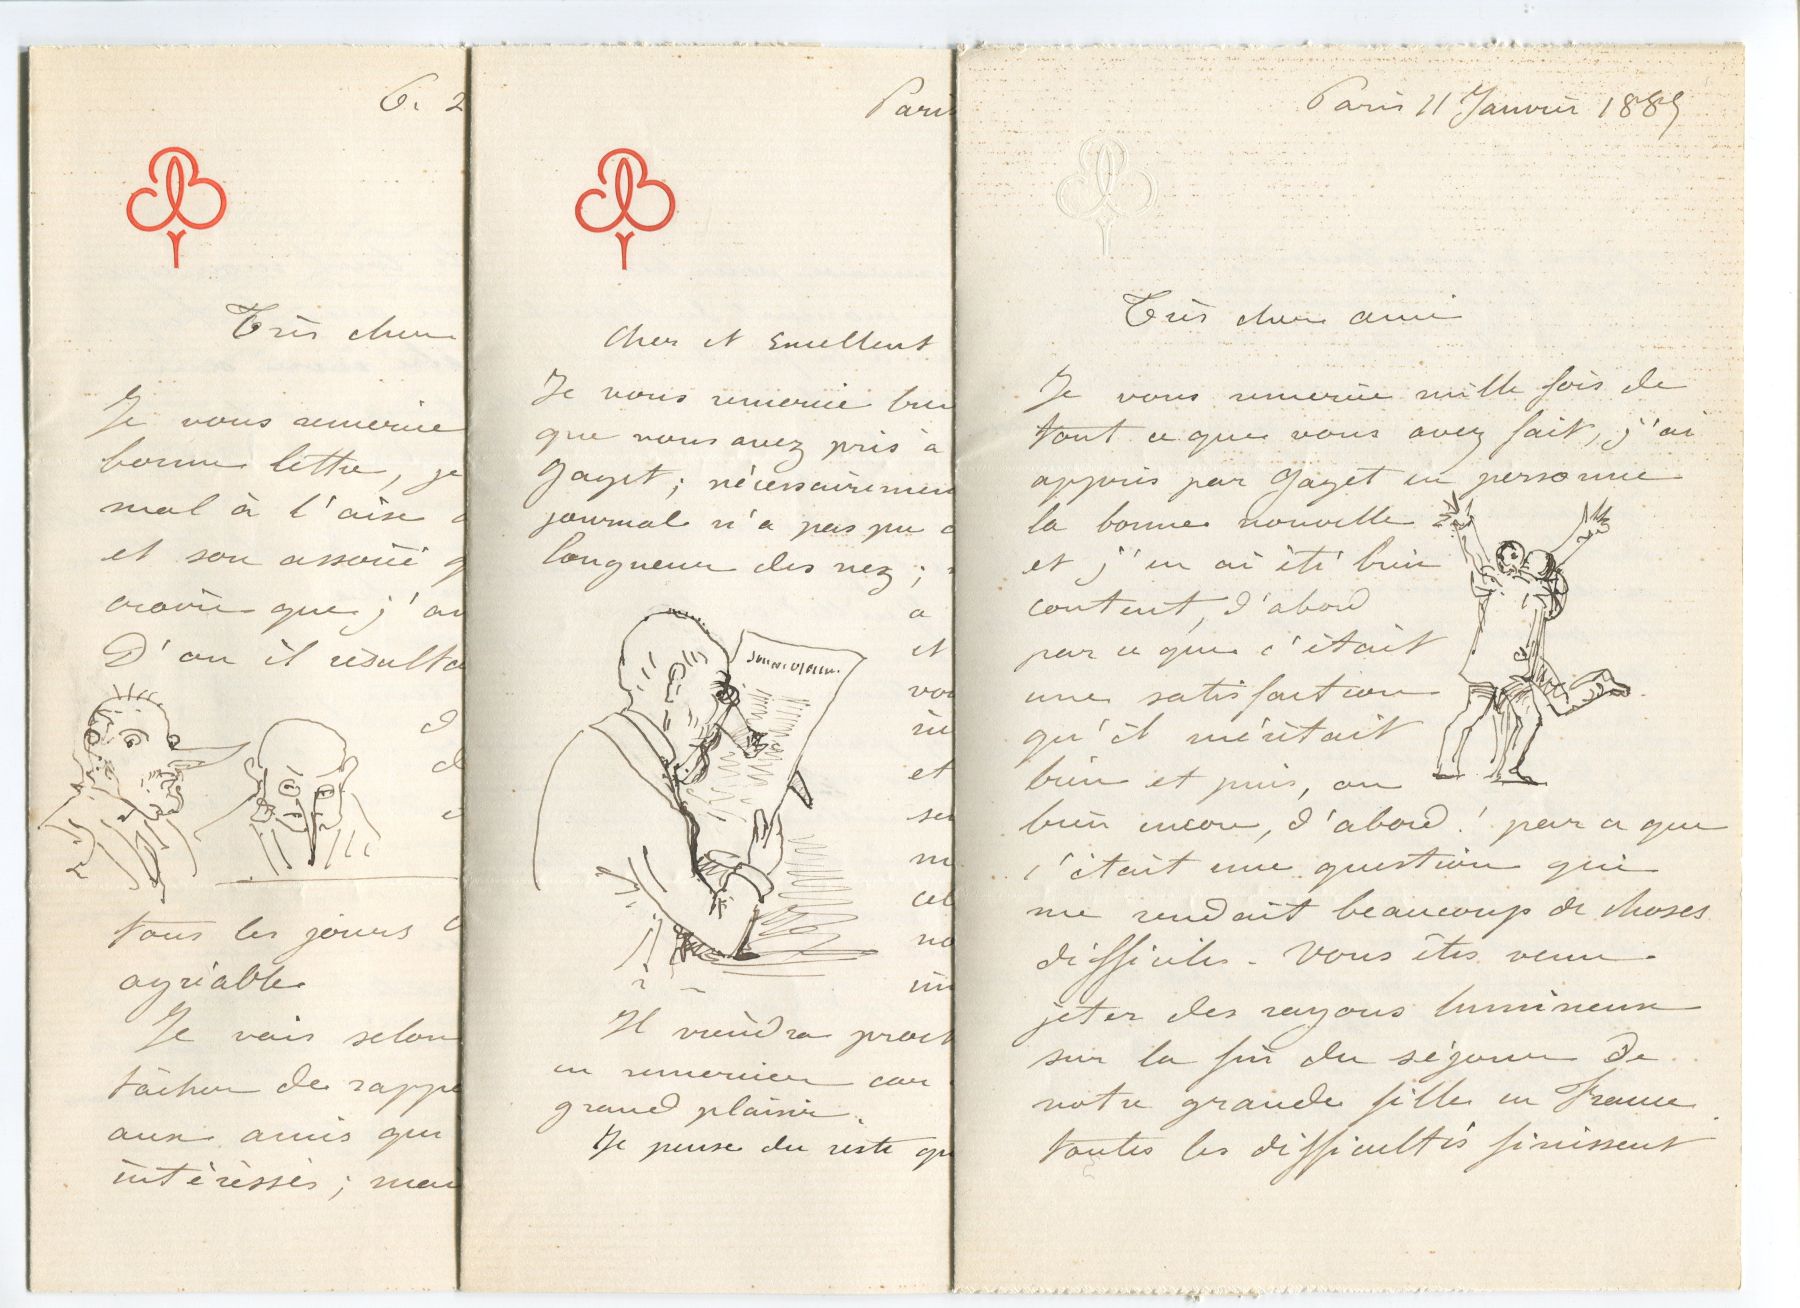 P. 2
Très cher
Je vous remercie
bonne lettre, je
mal à l'aise
et son associé q
avoir que j'av
D'où il résulta
d
d
tous les jours
agréable
Je vais selon
tâcher de rappe
aux amis qui
intéressés; mai
Paris
Cher et Excellent
Je vous remercie bien
que vous avez pris à
Gayet; nécessairemen
journal n'a pas pu
longueur des nez;
a
et
vou
et
ser
m
cel
no
un
Il viendra proch
en remercier car
grand plaisir.
Je pense du reste qu
Paris 11 Janvier 1885
Très cher ami
Je vous remercie mille fois de
tout ce que vous avez fait, j'ai
appris par Gayet en personne
la bonne nouvelle
et j'en ai été bien
content, d'abord
parce que c'était
une satisfaction
qu'il méritait
bien et puis, ou
bien encore, d'abord! parce que
c'était une question qui
me rendait beaucoup de choses
difficiles - Vous êtes venu
jeter des rayons lumineux
sur la fin du séjour de
notre grande fille en France
toutes les difficultés finissent